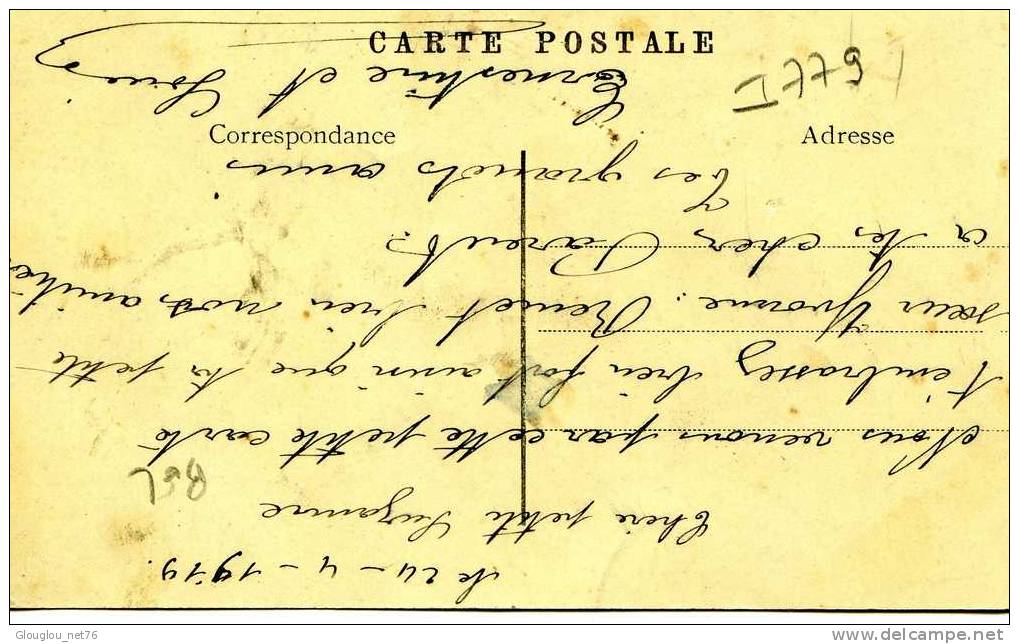 CARTE POSTALE
Correspondance
Adresse
I 779
Le 24-4-1919.
Chère petite Suzanne
Nous venons par cette petite carte
t'embrasser bien fort ainsi que ta petite
sœur Yvonne. Remet bien nos amitiés
a tes chers Parents.
Tes grands amis
Ernestine et Louis
Glouglou_net76
www.delcampe.net